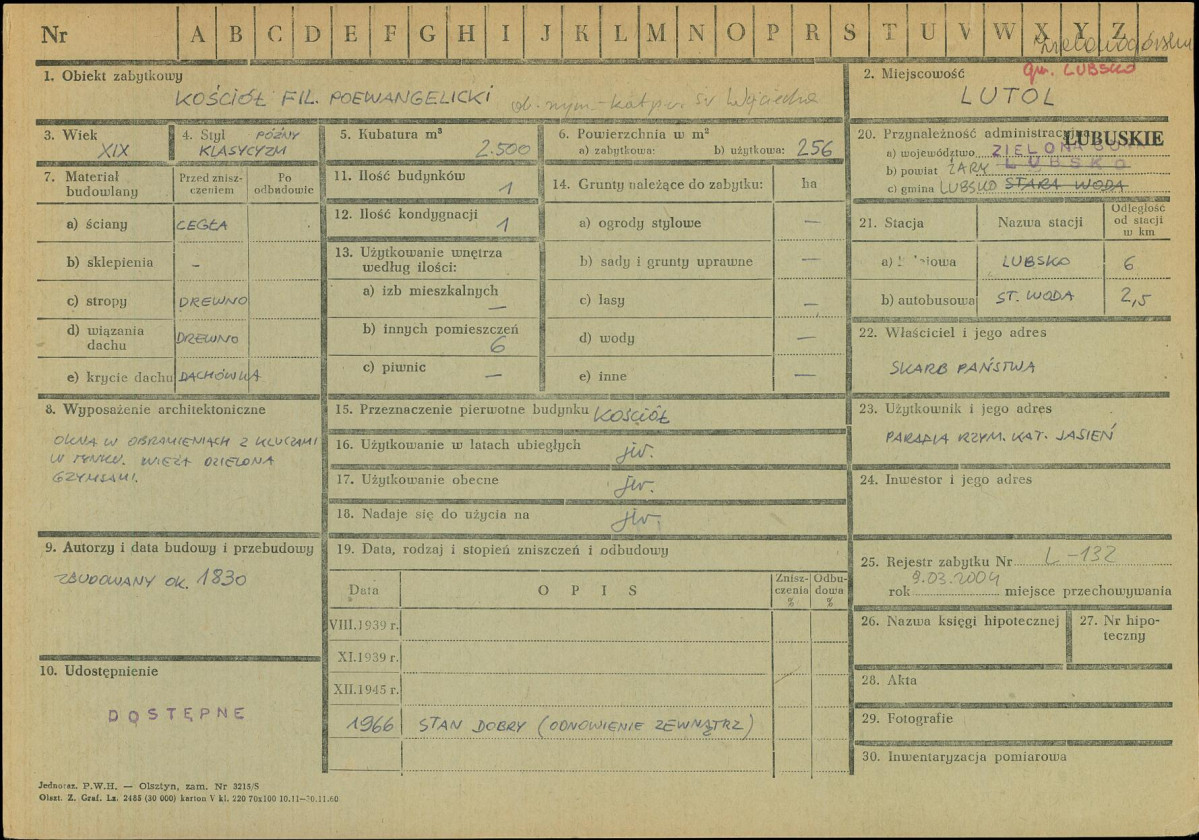 Nr A B C D E F G H I J K L M N O P R S T U V W X Y Z
Zielonogórskie
gm. LUBSKO
1. Obiekt zabytkowy
KOŚCIÓŁ FIL. POEWANGELICKI ob. rzym.-kat. p.w. św. Wojciecha
2. Miejscowość
LUTOL
3. Wiek
XIX
4. Styl PÓŹNY
KLASYCYZM
5. Kubatura m³
2.500
6. Powierzchnia w m²
a) zabytkowa: b) użytkowa: 256
20. Przynależność administracyjna LUBUSKIE
a) województwo ZIELONA GÓRA
b) powiat ŻARY LUBSKO
c) gmina LUBSKO STARA WODA
7. Materiał budowlany
Przed zniszczeniem
Po odbudowie
a) ściany CEGŁA
b) sklepienia –
c) stropy DREWNO
d) wiązania dachu DREWNO
e) krycie dachu DACHÓWKA
11. Ilość budynków
1
12. Ilość kondygnacji
1
13. Użytkowanie wnętrza
według ilości:
a) izb mieszkalnych
—
b) innych pomieszczeń
6
c) piwnic
—
14. Grunty należące do zabytku: ha
a) ogrody stylowe —
b) sady i grunty uprawne —
c) lasy —
d) wody —
e) inne —
21. Stacja Nazwa stacji Odległość od stacji w km
a) LUBSKO 6
b) autobusowa ST. WODA 2,5
22. Właściciel i jego adres
SKARB PAŃSTWA
8. Wyposażenie architektoniczne
OKNA W OBRAMIENIACH Z KLUCZAMI
W TYNKU. WIEŻA DZIELONA
GZYMSAMI.
15. Przeznaczenie pierwotne budynku KOŚCIÓŁ
16. Użytkowanie w latach ubiegłych jw.
17. Użytkowanie obecne jw.
18. Nadaje się do użycia na jw.
23. Użytkownik i jego adres
PARAFIA RZYM. KAT. JASIEŃ
24. Inwestor i jego adres
9. Autorzy i data budowy i przebudowy
ZBUDOWANY OK. 1830
19. Data, rodzaj i stopień zniszczeń i odbudowy
Data OPIS Zniszczenia % Odbudowa %
VIII.1939 r.
XI.1939 r.
XII.1945 r.
1966 STAN DOBRY (ODNOWIENIE ZEWNĄTRZ)
25. Rejestr zabytku Nr L-132
9.03.2004
rok miejsce przechowywania
26. Nazwa księgi hipotecznej
27. Nr hipoteczny
10. Udostępnienie
DOSTĘPNE
28. Akta
29. Fotografie
30. Inwentaryzacja pomiarowa
Jednoraz. P.W.H. — Olsztyn, zam. Nr 3215/S
Olszt. Z. Graf. Lz. 2485 (30 000) karton V kl. 220 70x100 10.11—30.11.60